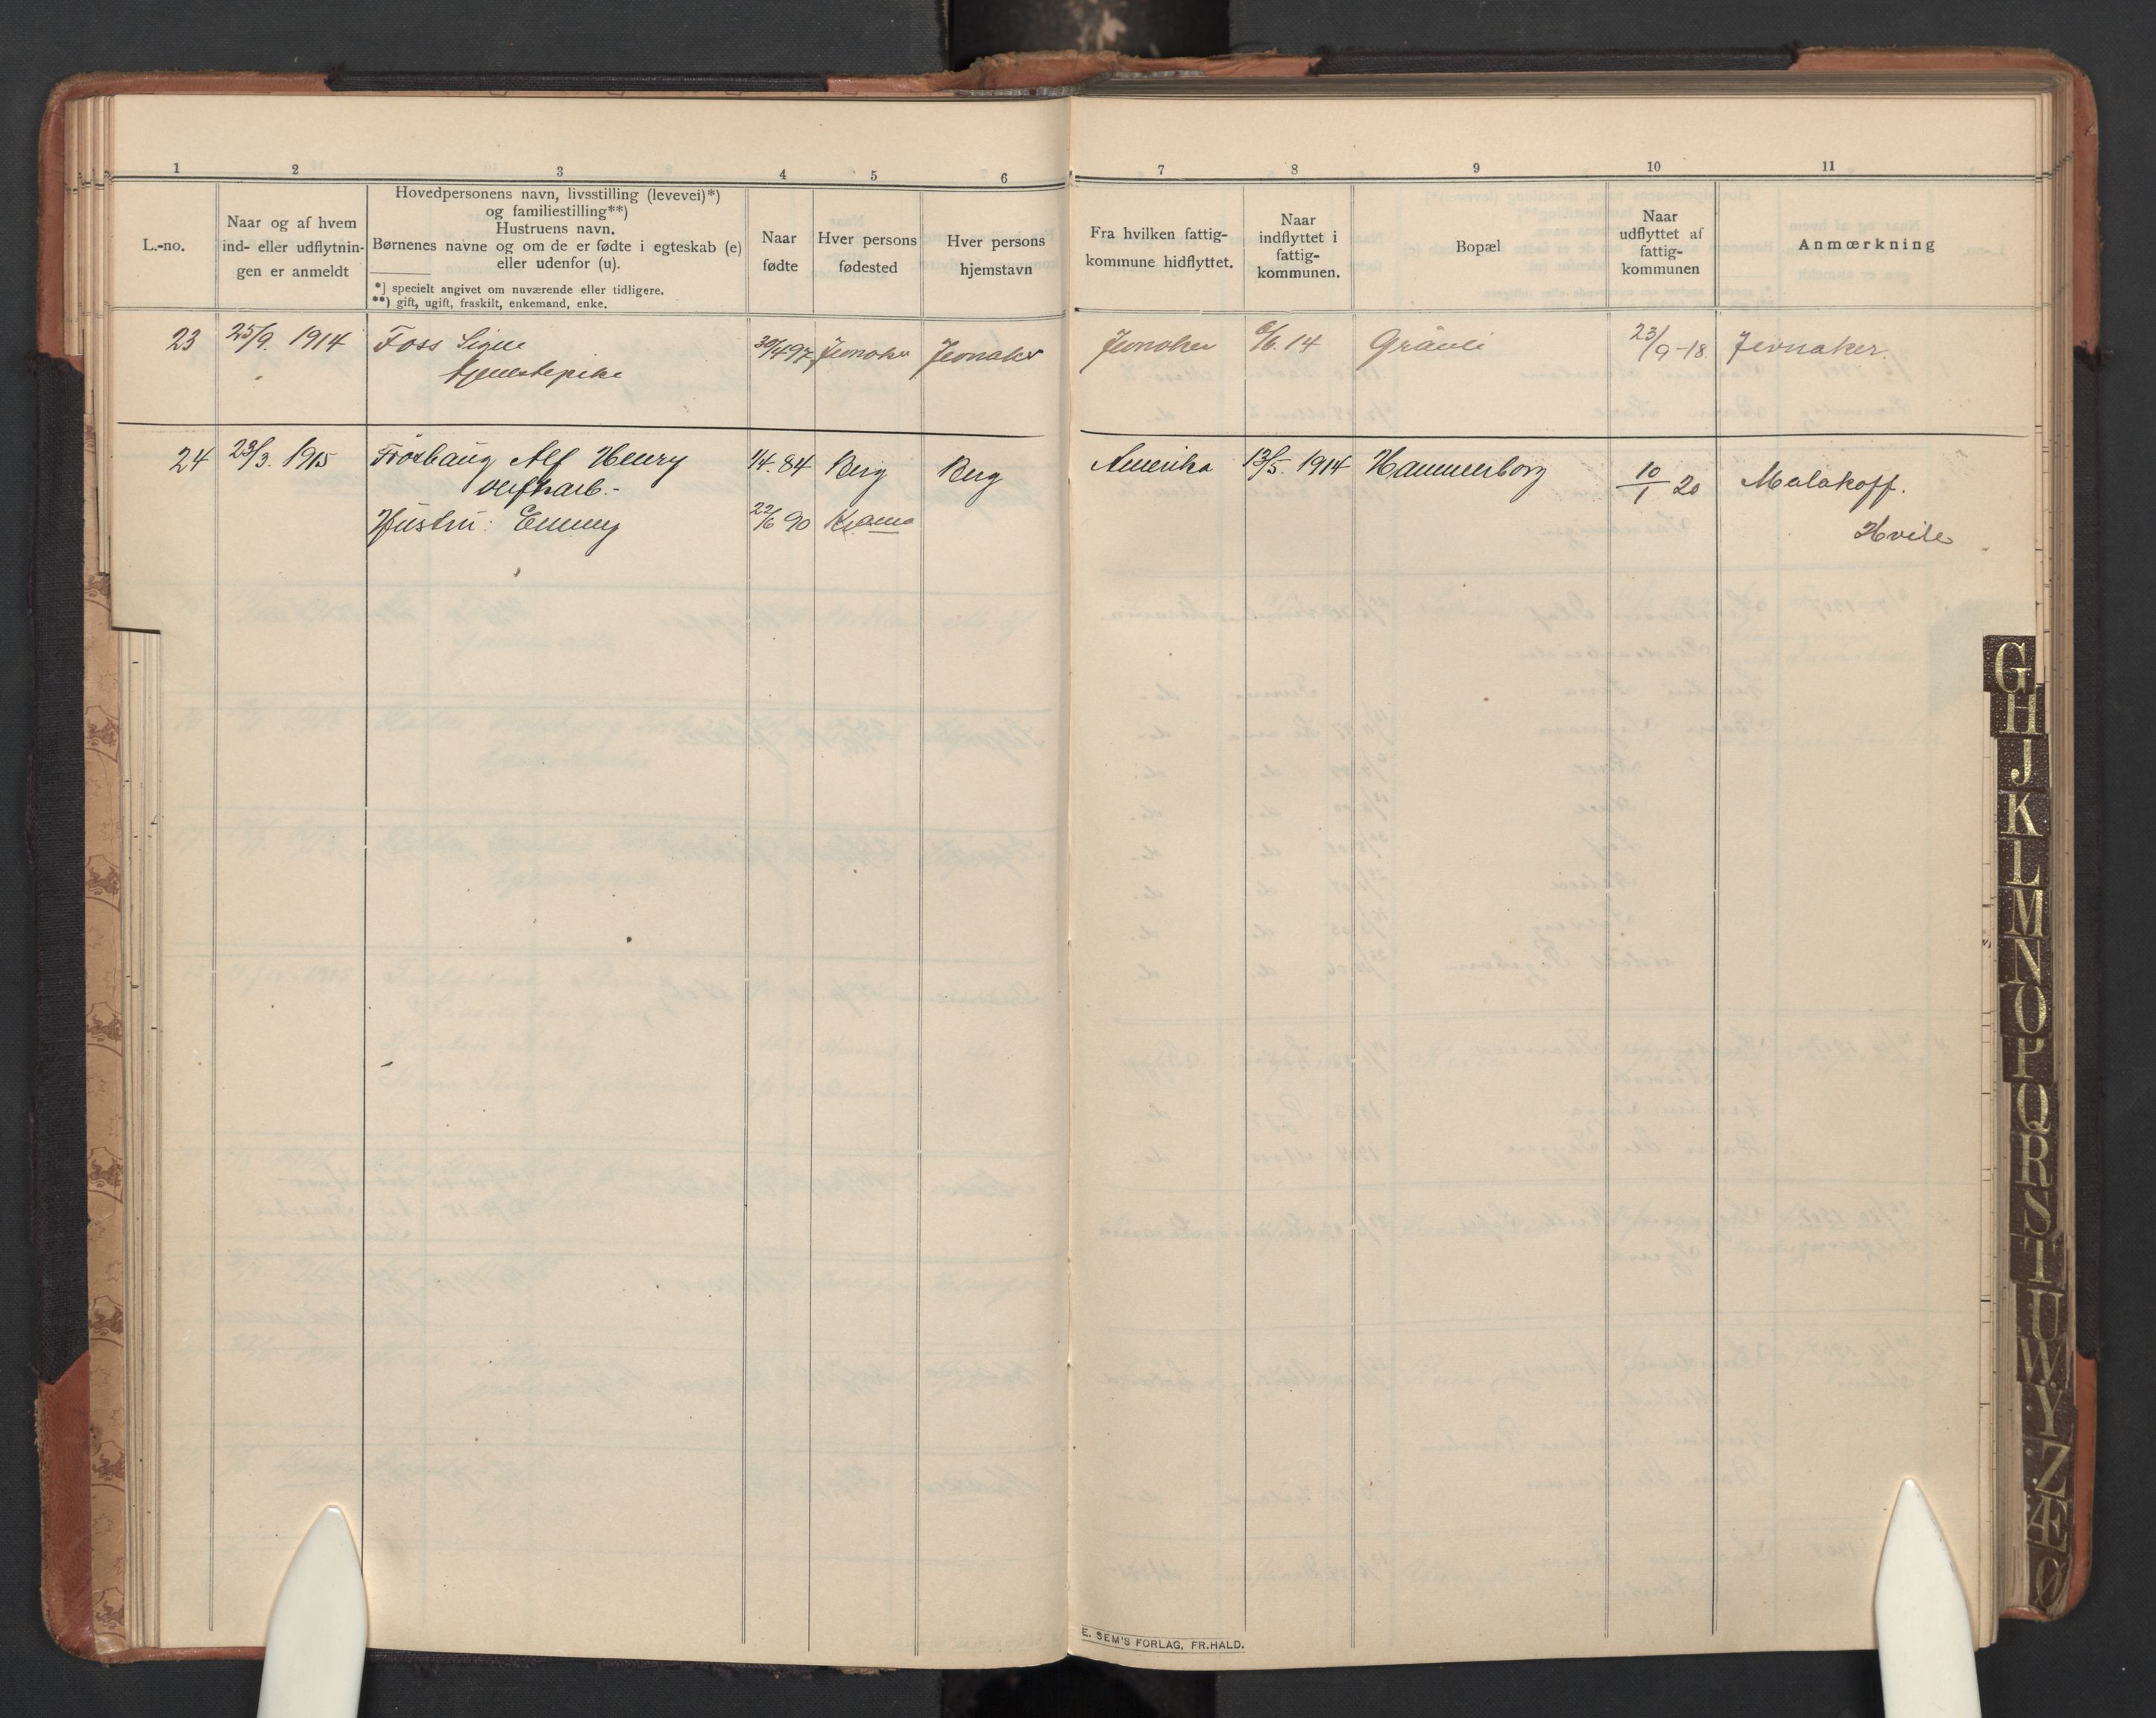 1 2 3 4 5 6 7 8 9 10 11
L.-no.
Naar og af hvem
ind- eller udflytnin-
gen er anmeldt
Hovedpersonens navn, livsstilling (levevei)*)
og familiestilling**)
Hustruens navn.
Børnenes navne og om de er fødte i egteskab (e)
eller udenfor (u).
*) specielt angivet om nuværende eller tidligere.
**) gift, ugift, fraskilt, enkemand, enke.
Naar
fødte
Hver persons
fødested
Hver persons
hjemstavn
Fra hvilken fattig-
kommune hidflyttet.
Naar
indflyttet i
fattig-
kommunen.
Bopæl
Naar
udflyttet af
fattig-
kommunen
Anmærkning
23 25/9. 1914 Foss Signe 30/4 97 Jevnaker Jevnaker Jevnaker 6/6. 14 Gråuli 23/9-18 Jevnaker.
tjenestepike
24 23/3. 1915 Frösbaug Alf Henry 1/4. 84 Berg Berg Amerika 13/5. 1914 Hammerborg 10/1 20 Malakoff.
Hustru: Emmy 22/6 90 Kr.ania
Hvile
E. SEM'S FORLAG, FR.HALD.
G
H
J
K
L
M
N
O
P
Q
R
S
T
U
W
Y
Z
Æ
Ø